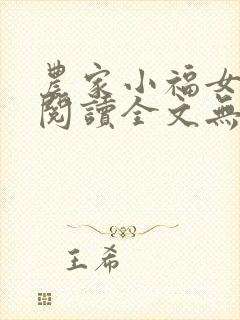 農家小福女
閱讀全文無
王希